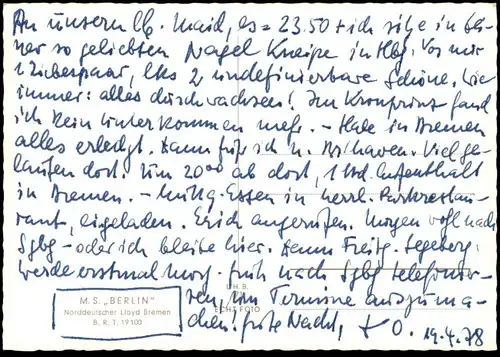 An unsern lb. Maid, es = 23.50 + ich sitze in dei-
ner so geliebten Nagel Kneipe in Hbg. Vor mir
1 Zieherpaar, lks 2 undefinierbare Schöne. Wie
immer: alles durchwachsen! Im Kronprinz fand
ich kein Unterkommen mehr. - Habe in Bremen
alles erledigt. Dann fuhr ich n. Brhaven. Viel ge-
laufen dort. Um 20°° ab dort, 1 Std. Aufenthalt
in Bremen. - Mittg. Essen in herrl. Parkrestau-
rant, eingeladen. Erich angerufen. Morgen wohl nach
Sgbg - oder ich bleibe hier. Dann Freitg. Segeberg.
Werde erstmal morg. früh nach Sgbg telefonie-
ren, um Termine auszuma-
chen! Gute Nacht, + O. 19.4.78
M. S. „BERLIN"
Norddeutscher Lloyd Bremen
B. R. T. 19100
H. B.
ECHT FOTO